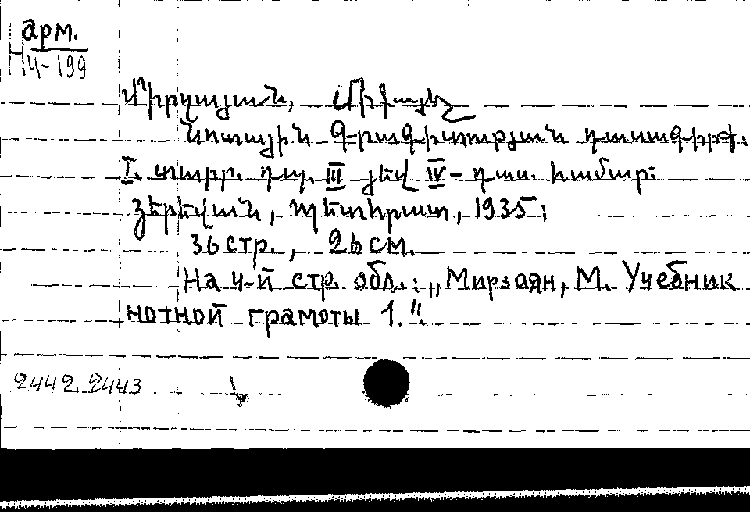 арм.
Н4-199
Միրզայան, Միքայել
Նոտային Գրագիտության դասագիրք.
I. տարր. դպ. III յեվ IV-դաս. համար:
Յերեվան, Պետհրատ, 1935;
36 стр., 26 см.
На 4-й стр. обл.: „Мирзоян, М. Учебник
нотной грамоты 1.".
2442 2443